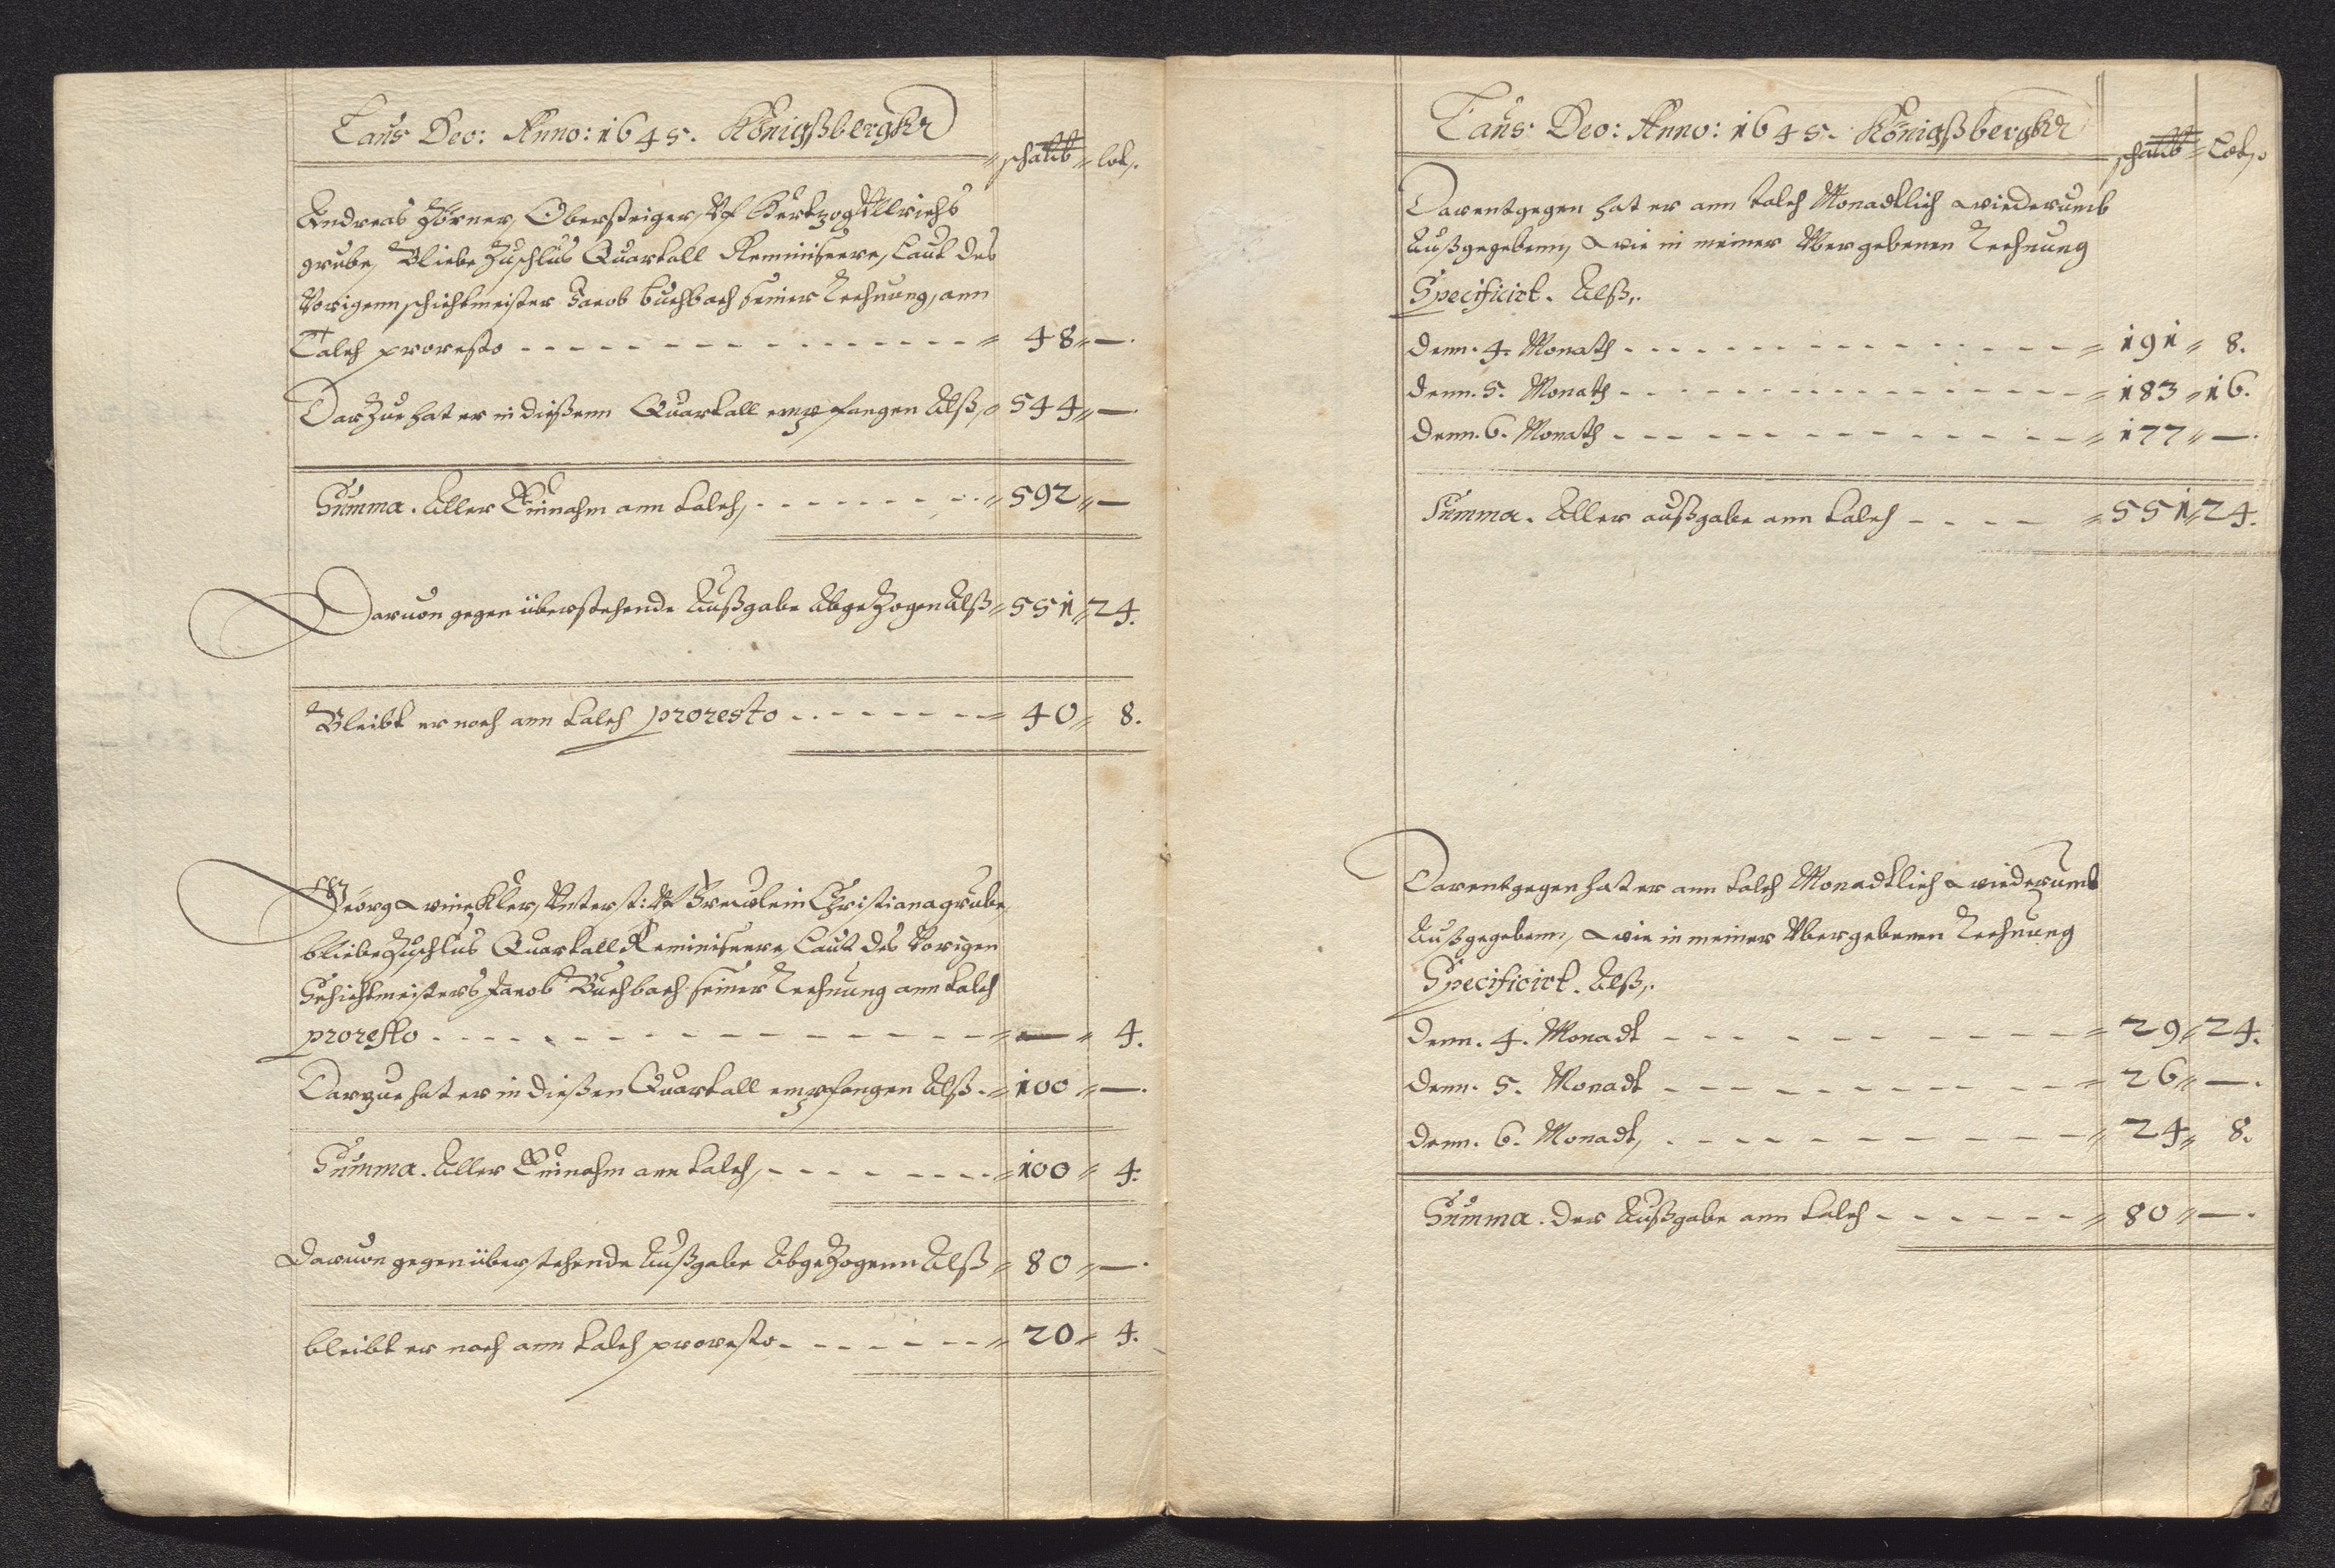 Laus Deo: Anno: 1645. Königßbergkr
schal℔ lot.
Andreas Zörner, Obersteiger, Vf Hertzog Ullrichs
grube, Bliebe Zuschlus Quartall Reminiscere, Laut des
Vorigenn schichtmeister Jacob buchbach seiner Rechnung, ann
Talch pro resto - - - 48 —.
Dar Zue hat er in dießenn Quartall empfangen Alß, 544 —.
Summa. Aller Einnahm ann talch, - - - 592 —
Daruon gegen überstehende Außgabe Abgezogen Alß 551 24.
Bleibt er noch ann talch pro resto - - - 40 8.
Geörg Winckler, Vnterst: Vf Freuwlein Christiana grube,
bliebe Zuschlus Quartall Reminiscere, Laut des Vorigen
Schichtmeisters Jacob Buchbach seiner Rechnung ann talch
pro resto - - - — 4.
Darzue hat er in dießen Quartall empfangen Alß. 100 —.
Summa. Aller Einnahm ann talch, - - - 100 4.
Daruon gegen überstehende Außgabe Abgezogenn Alß 80 —.
bleibt er noch ann talch pro resto - - - 20 4.
Laus Deo: Anno: 1645. Königßbergkr
schal℔ Lot.
Darentgegen hat er ann talch Monadtlich wiederumb
Außgegebenn, wie in meiner Vbergebenen Rechnung
Specificirt. Alß,.
Denn. 4. Monath - - - 191 8.
Denn. 5. Monath - - - 183 16.
Denn. 6. Monath - - - 177 —.
Summa. Aller außgabe ann talch - - - 551 24.
Darentgegen hat er ann talch Monadtlich wiederumb
Außgegebenn, wie in meiner Vbergebenen Rechnung
Specificirt. Alß,.
Denn. 4. Monadt - - - 29 24.
Denn. 5. Monadt - - - 26 —.
Denn. 6. Monadt, - - - 24 8.
Summa. Der Außgabe ann talch - - - 80 —.